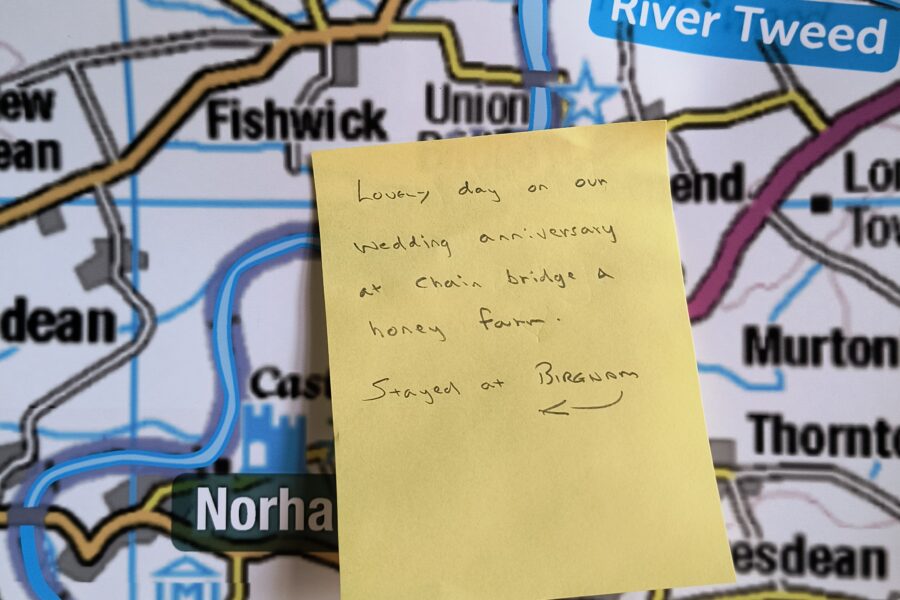 River Tweed
ew
ean
Fishwick
Union
U
end
Lon
Tow
dean
Cast
Norha
Murton
Thornto
esdean
Lovely day on our
wedding anniversary
at chain bridge &
honey farm.
Stayed at BIRGHAM